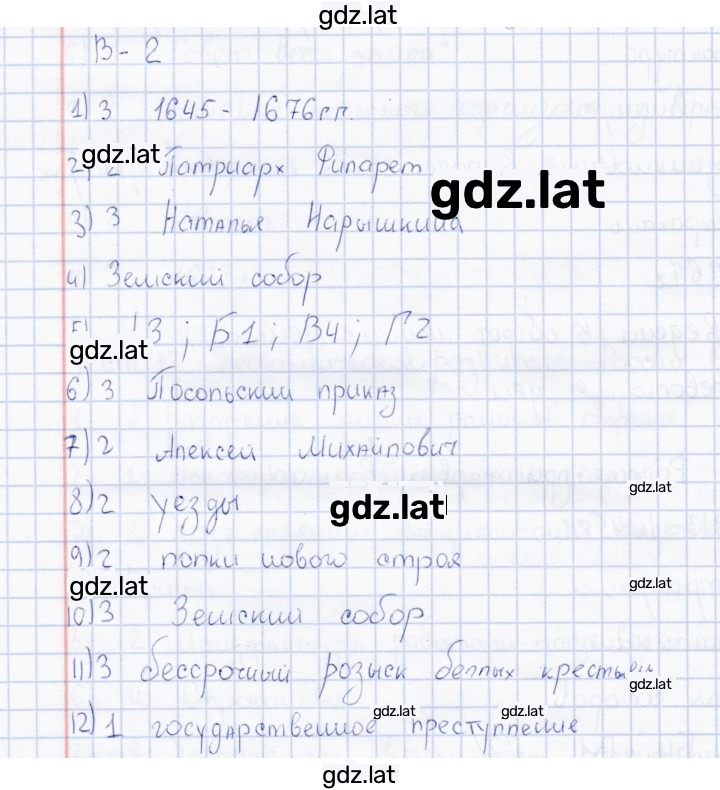 gdz.lat
В - 2
1) 3 1645 - 1676 гг.
gdz.lat
2) 2 Патриарх Филарет
gdz.lat
3) 3 Наталья Нарышкина
4) Земский собор
3; Б1; В4; Г2
gdz.lat
6) 3 Посольский приказ
7) 2 Алексей Михайлович
gdz.lat
8) 2 уезды
gdz.lat
9) 2 полки нового строя
gdz.lat gdz.lat
10) 3 Земский собор
11) 3 бессрочный розыск беглых крестьян
gdz.lat
gdz.lat gdz.lat
12) 1 государственное преступление
gdz.lat